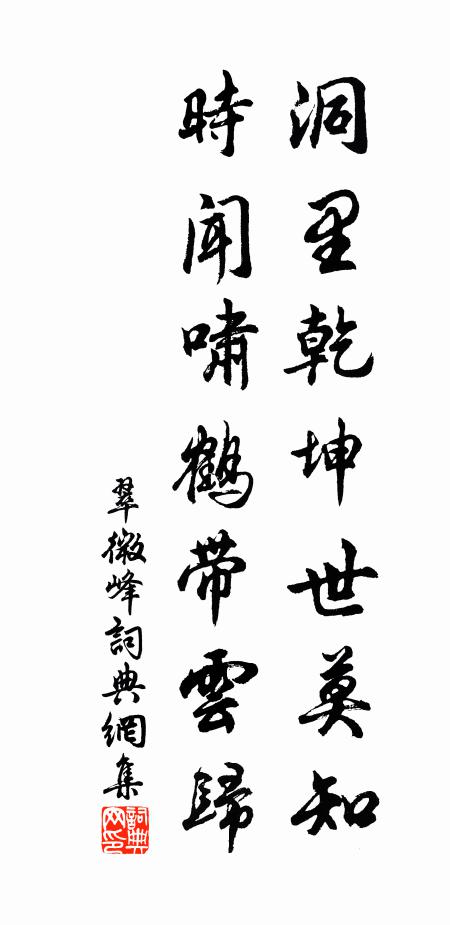 洞里乾坤世莫知
時聞嘯鶴帶雲歸
翠微峰詞典網集
詞典网印